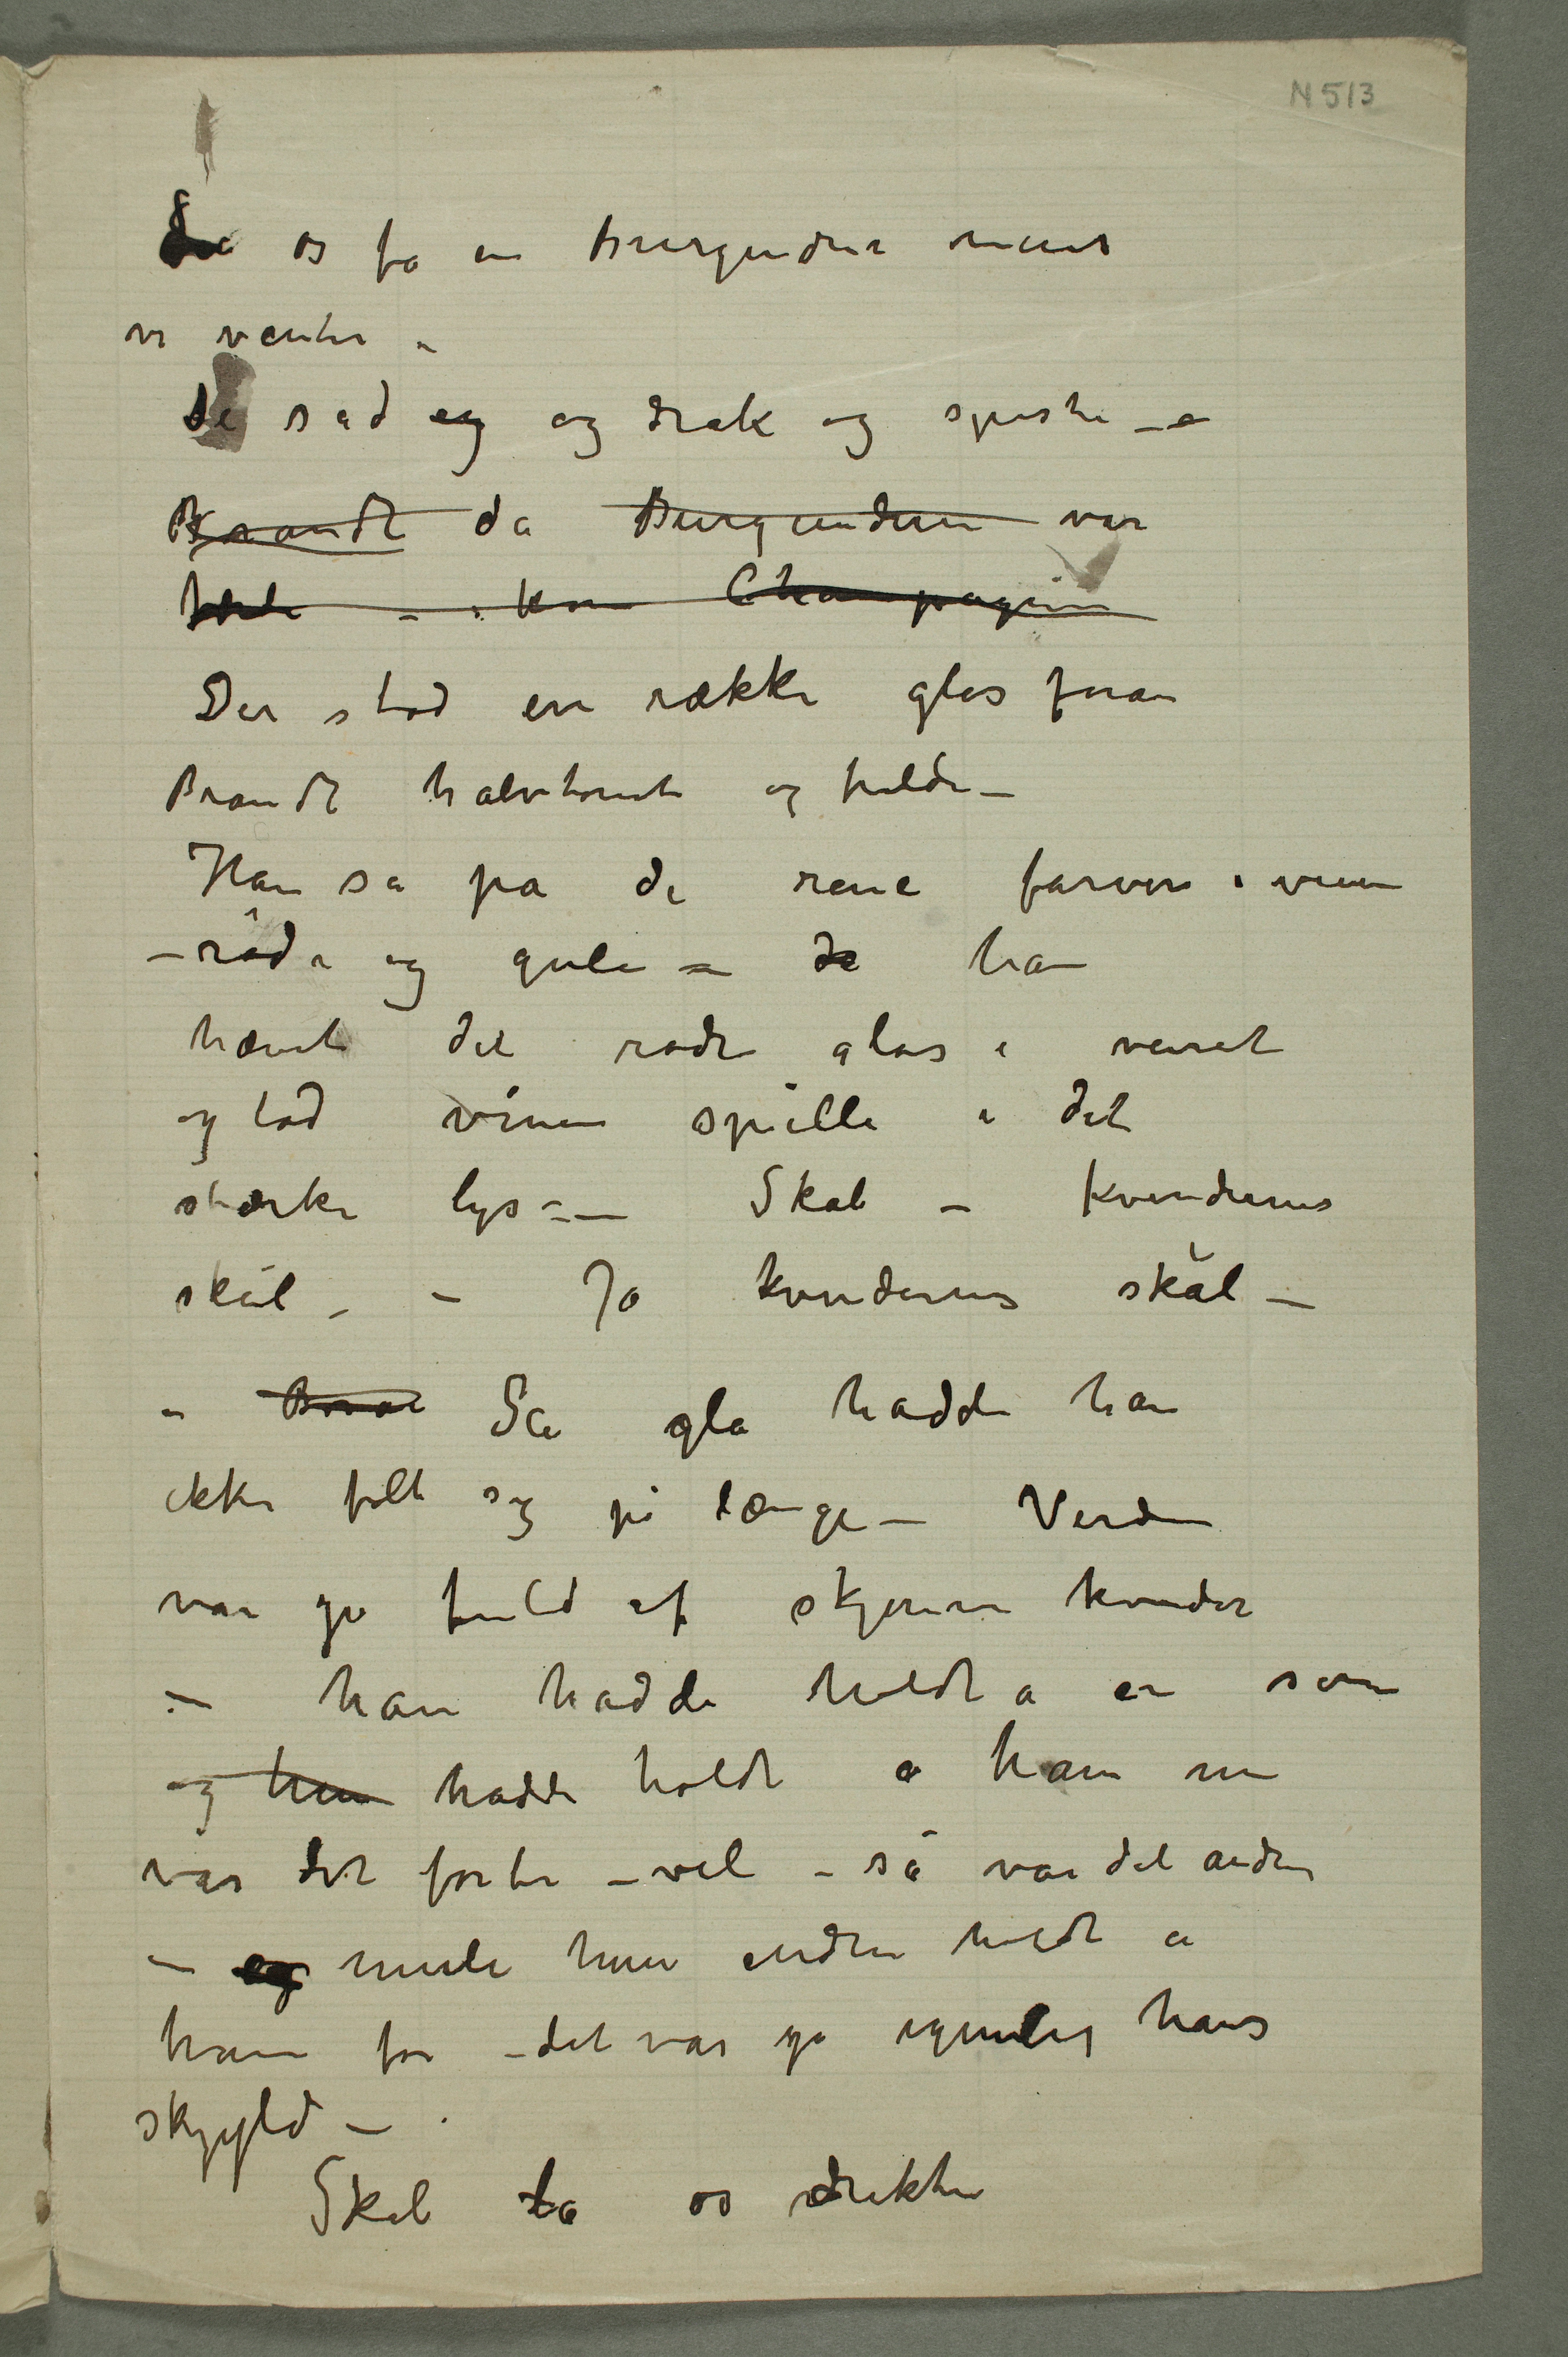 N 513
La os få en Burgunder mens
vi venter –
De sad og og drak og spiste – –
Brandt da Burgunderen var
– kom Champagnen
Der stod en række glas foran
Brandt halvtømte og fulde –
Han så på de rene farver i vinen
– røde og gule – de han
hævet det røde glas i veiret
og lod vinen spille i det
stærke lys – – Skål – Kvindernes
skål – – Ja kvindernes skål –
– Så gla hadde han
ikke følt sig på længe – Verden
var jo fuld af skjønne kvinder
– han hadde holdt a en som
og hun hadde holdt a ham nu
var det forbi – vel – så var det andre
– og mule hun endnu holdt a
ham for – det var jo egenlig hans
skyyld –
Skål La os drikke